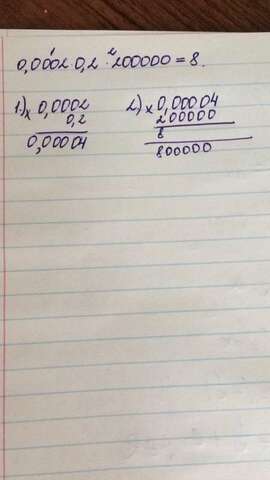 0,0002 · 0,2 · 200000 = 8.
1) × 0,0002
0,2
0,00004
2) × 0,00004
200000
8
800000